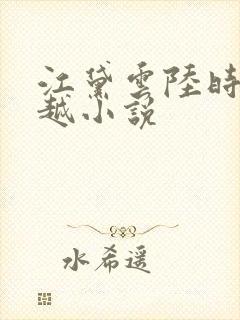 江黛雲陸時
越小說
水希遥